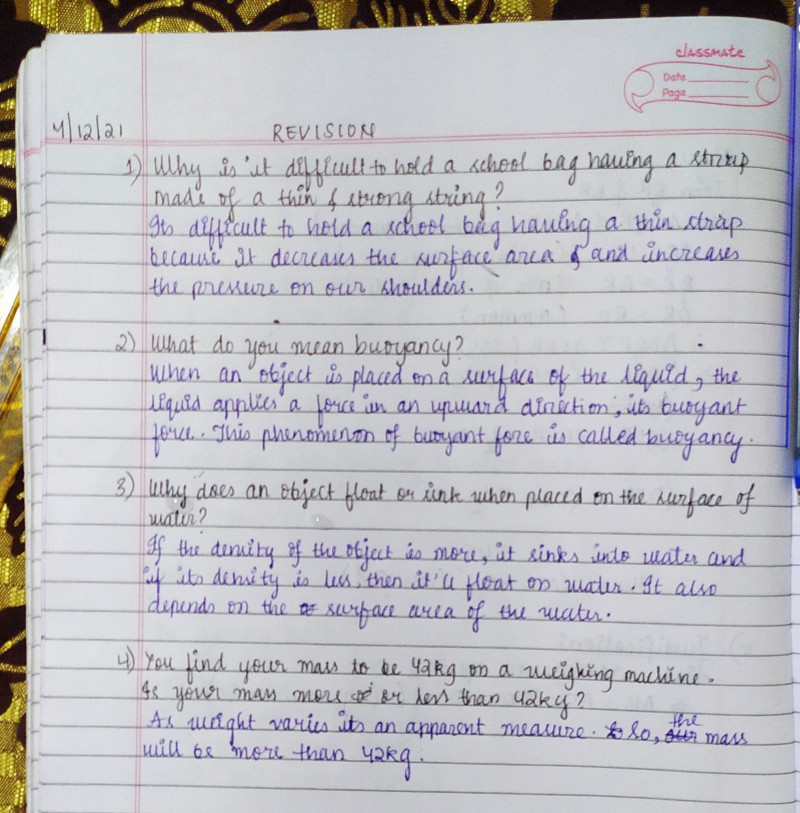 classmate
Date
Page
4/12/21
REVISION
1) Why is it difficult to hold a school bag having a strap
made of a thin & strong string?
Its difficult to hold a school bag having a thin strap
because it decreases the surface area and increases
the pressure on our shoulders.
2) What do you mean buoyancy?
When an object is placed on a surface of the liquid, the
liquid applies a force in an upward direction, its buoyant
force. This phenomenon of buoyant fore is called buoyancy.
3) Why does an object float or sink when placed on the surface of
water?
If the density of the object is more, it sinks into water and
if its density is less, then it'll float on water. It also
depends on the surface area of the water.
4) You find your mass to be 42kg on a weighing machine.
Is your mass more or less than 42kg?
As weight varies its an apparent measure. So, the mass
will be more than 42kg.